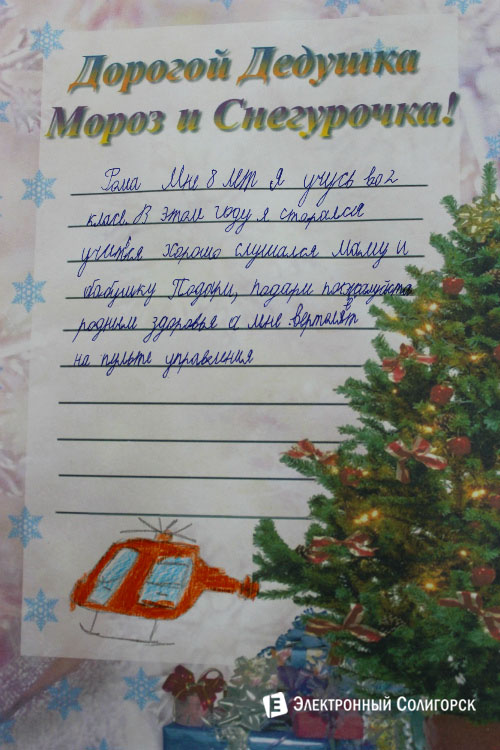 Дорогой Дедушка
Мороз и Снегурочка!
Рома Мне 8 лет Я учусь во 2
класе В этом году я старался
учится хорошо слушался Маму и
бабушку Подари, подари пожалуйста
родным здоровья а мне вертолёт
на пульте управления
Электронный Солигорск